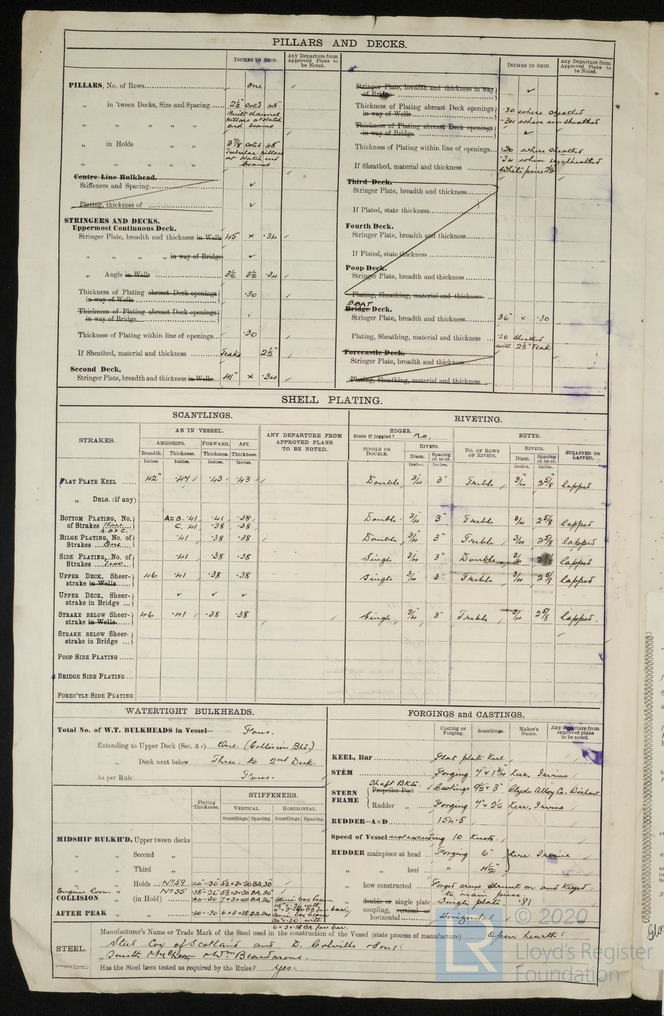 PILLARS AND DECKS.
INCHES IN SHIP. Any Departure from Approved Plans to be Noted.
PILLARS, No. of Rows One
„ in 'tween Decks, Size and Spacing 2½"
„ in Holds
Centre Line Bulkhead.
Stiffeners and Spacing ✓
Plating, thickness of ✓
STRINGERS AND DECKS.
Uppermost Continuous Deck.
Stringer Plate, breadth and thickness in Wells 45" x .34
„ „ „ „ in way of Bridge ✓
„ Angle in Wells 3½ 3½ .34
Thickness of Plating abreast Deck openings in way of Wells .30
Thickness of Plating abreast Deck openings in way of Bridge ✓
Thickness of Plating within line of openings .30
If Sheathed, material and thickness Teak 2½"
Second Deck.
Stringer Plate, breadth and thickness in Wells 41" x .34
INCHES IN SHIP. Any Departure from Approved Plans to be Noted.
Stringer Plate, breadth and thickness in way of Bridge ✓
Thickness of Plating abreast Deck openings in way of Wells .30 where sheathed
.34 where unsheathed
Thickness of Plating abreast Deck openings in way of Bridge ✓
Thickness of Plating within line of openings .30 where sheathed
.34 where unsheathed
If Sheathed, material and thickness White pine 2½
Third Deck.
Stringer Plate, breadth and thickness
If Plated, state thickness
Fourth Deck.
Stringer Plate, breadth and thickness
If Plated, state thickness
Poop Deck.
Stringer Plate, breadth and thickness
Plating, Sheathing, material and thickness
BOAT
Bridge Deck.
Stringer Plate, breadth and thickness 36" x .30
Plating, Sheathing, material and thickness .20 sheathed
with 2½" Teak
Forecastle Deck.
Stringer Plate, breadth and thickness
Plating, Sheathing, material and thickness
SHELL PLATING.
SCANTLINGS. RIVETING.
STRAKES. AS IN VESSEL. ANY DEPARTURE FROM APPROVED PLANS TO BE NOTED. EDGES. State if joggled? No. BUTTS.
AMIDSHIPS. FORWARD. AFT. SINGLE OR DOUBLE. RIVETS. NO. OF ROWS OF RIVETS. RIVETS. STRAPPED OR LAPPED.
Breadth. Thickness. Thickness. Thickness. Diam. Spacing cr. to cr. Diam. Spacing cr. to cr.
Inches. Inches. Inches. Inches. Inches. Inches. Inches. Inches.
FLAT PLATE KEEL 42" .43 .43 Double 3/4 3" Treble 3/4 2 5/8 lapped
„ DBLG. (if any)
BOTTOM PLATING, No. of Strakes Three A.B.&C. A&B .41 .41 .38 Double 3/4 3" Treble 3/4 2 5/8 lapped
C .41 .38 .38
BILGE PLATING, No. of Strakes One .41 .38 .38 Double 3/4 3" Treble 3/4 2 5/8 lapped
SIDE PLATING, No. of Strakes .41 .38 .38 Single 3/4 3" Double 3/4 lapped
UPPER DECK, Sheer-strake in Wells 46 .41 .38 .38 Single 3/4 3" Treble 3/4 2 5/8 lapped
UPPER DECK, Sheer-strake in Bridge ✓ ✓ ✓
STRAKE BELOW Sheer-strake in Wells 46 .41 .38 .38 Single 3/4 3" Treble 3/4 2 5/8 lapped.
STRAKE BELOW Sheer-strake in Bridge
POOP SIDE PLATING
BRIDGE SIDE PLATING
FOREC'TLE SIDE PLATING
WATERTIGHT BULKHEADS.
Total No. of W.T. BULKHEADS in Vessel— Four.
Extending to Upper Deck (Sec. 3 c) One (Collision Bhd.)
„ Deck next below Three, to 2nd Deck.
As per Rule Four.
Plating Thickness. STIFFENERS.
VERTICAL. HORIZONTAL.
Scantlings. Spacing. Scantlings. Spacing.
MIDSHIP BULKH'D, Upper tween decks
„ „ Second „
„ „ Third „
„ „ Holds No 59
Engine Room No 35
COLLISION „ (in Hold)
AFTER PEAK „
FORGINGS and CASTINGS.
Casting or Forging. Scantlings. Maker's Name. Any departure from approved plans to be noted.
KEEL, Bar Flat plate keel
STEM Forging 7" x 1¾ Kerr, Irvine
STERN FRAME Shaft Bkts. Propeller Post Castings Clyde Alloy Co. Wishaw
Rudder „ Forging 7" x 2¼ Kerr, Irvine
RUDDER—A×D 154.5
Speed of Vessel not exceeding 10 Knots.
RUDDER mainpiece at head Forging 6" Kerr Irvine
„ „ heel „ 4½"
„ how constructed Forged arms shrunk on and keyed
to main piece.
„ double or single plate Single plate .81
„ coupling, vertical or horizontal Horizontal
STEEL. Manufacturer's Name or Trade Mark of the Steel used in the construction of the Vessel (state process of manufacture) Open hearth
Steel Coy of Scotland and D. Colville & Sons
Smith McLean & Wm Beardmore.
Has the Steel been tested as required by the Rules? Yes.
© 2020
LR
Lloyd's Register
Foundation